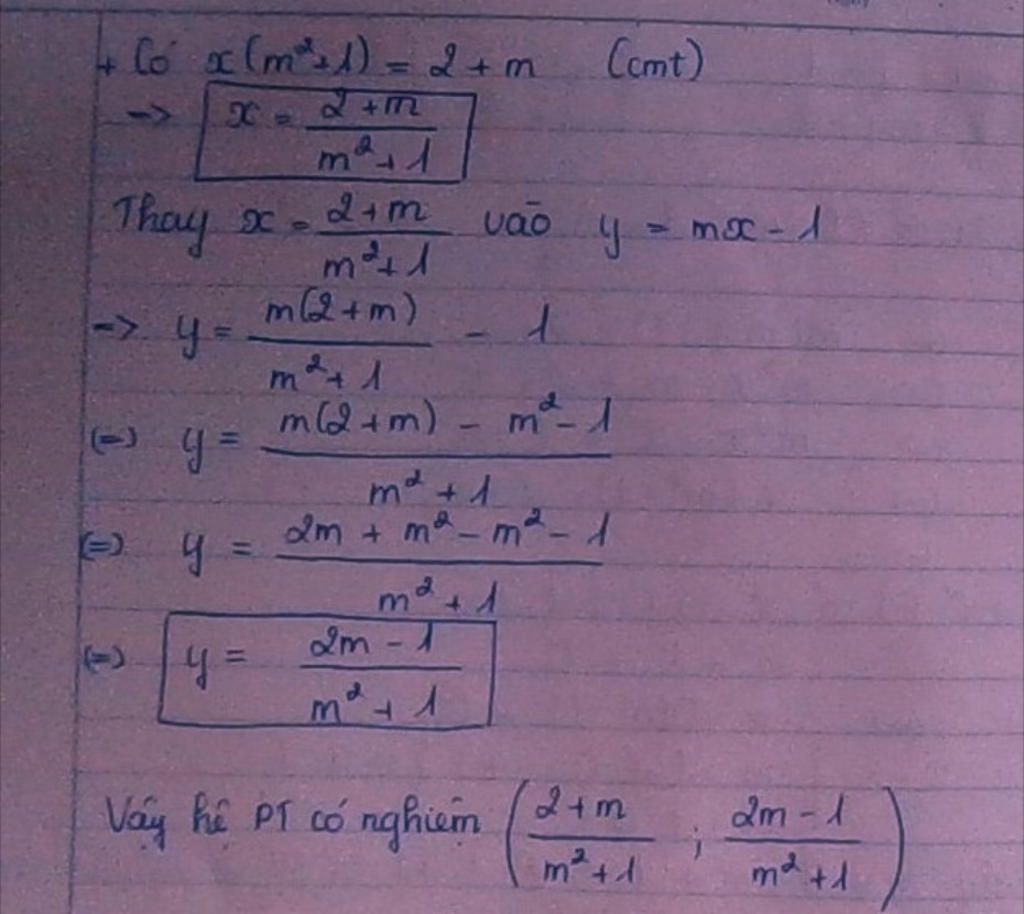 + Có x(m²+1) = 2 + m (cmt)
-> x = (2+m)/(m²+1)
Thay x = (2+m)/(m²+1) vào y = mx - 1
-> y = m(2+m)/(m²+1) - 1
(=) y = (m(2+m) - m² - 1)/(m² + 1)
(=) y = (2m + m² - m² - 1)/(m² + 1)
(=) y = (2m - 1)/(m² + 1)
Vậy hệ PT có nghiệm ((2+m)/(m²+1) ; (2m-1)/(m²+1))